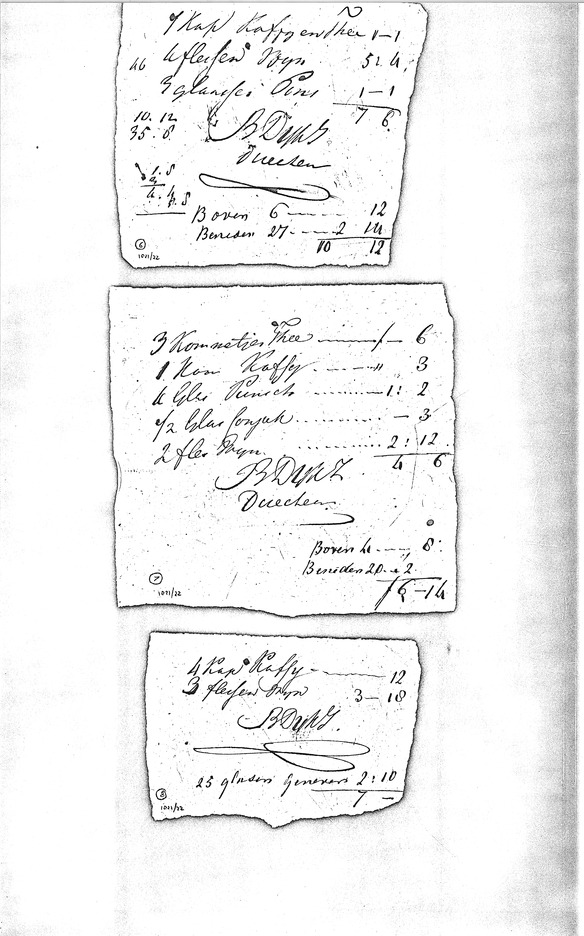 7 Kop Kaffy en Thee 1-1
46 4 flessen Wyn 5:4
3 glaasjes Pons 1-1
7 6
10. 12
35. 8
B Dyks
Directeur
1. 8
4. 4
8. 8
Boven 6 12
Beneden 27 2 14
10 12
6
1021/22
3 Kommetjes Thee 6
1 Kom Kaffy " 3
4 Glas Punsch 1: 2
1/2 Glas Conjak - 3
2 fles Wyn 2: 12
4 6
B Dyks
Directeur
Boven 4 8
Beneden 20 2
6-14
7
1021/22
4 Kop Kaffy 12
3 flessen Wyn 3-18
B Dyks.
25 glasen Genever 2:10
7 -
8
1021/22